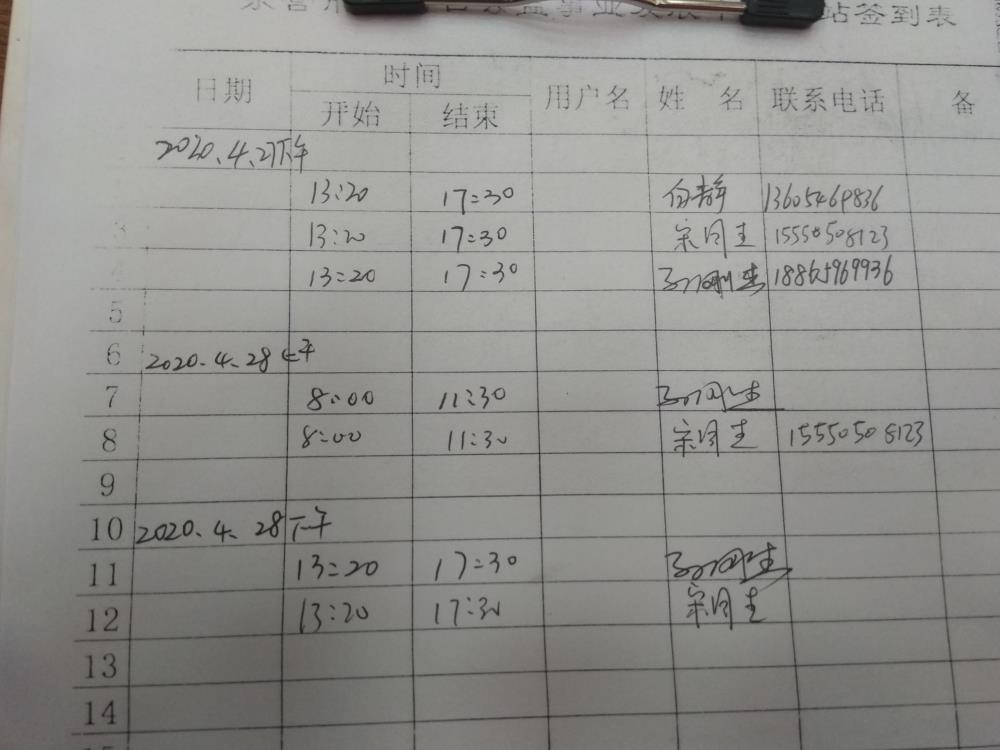 站签到表
日期 时间 用户名 姓 名 联系电话 备
开始 结束
2020.4.27下午
13:20 17:30 白静 13605469836
3 13:20 17:30 宋同生 15550508123
4 13:20 17:30 18865969936
5
6 2020.4.28上午
7 8:00 11:30
8 8:00 11:30 宋同生 15550508123
9
10 2020.4.28下午
11 13:20 17:30
12 13:20 17:30 宋同生
13
14